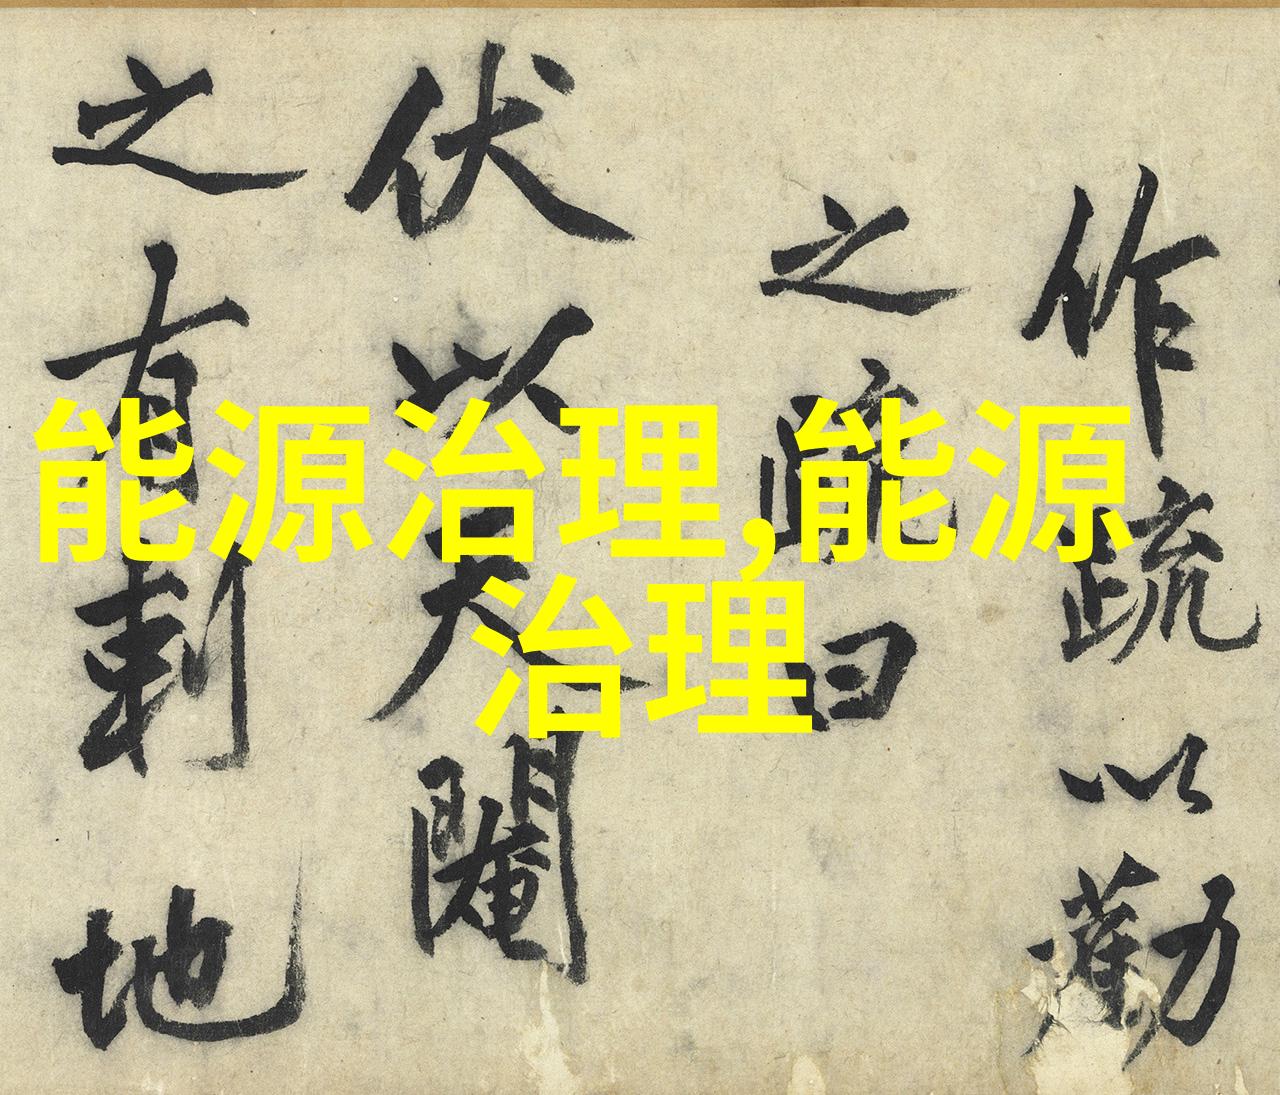 能源治理,能源
治理
作疏以勸
之疏曰
伏以天閹
之有刺地